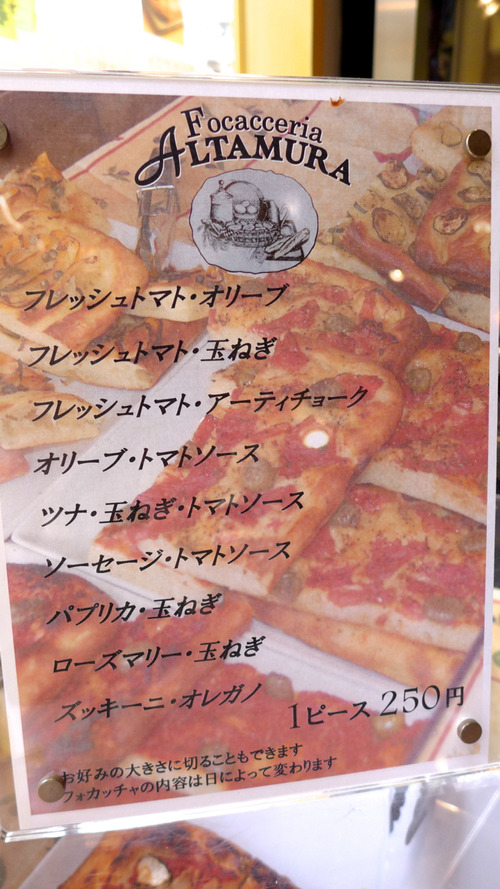 Focacceria
ALTAMURA
フレッシュトマト・オリーブ
フレッシュトマト・玉ねぎ
フレッシュトマト・アーティチョーク
オリーブ・トマトソース
ツナ・玉ねぎ・トマトソース
ソーセージ・トマトソース
パプリカ・玉ねぎ
ローズマリー・玉ねぎ
ズッキーニ・オレガノ
1ピース 250円
お好みの大きさに切ることもできます
フォカッチャの内容は日によって変わります